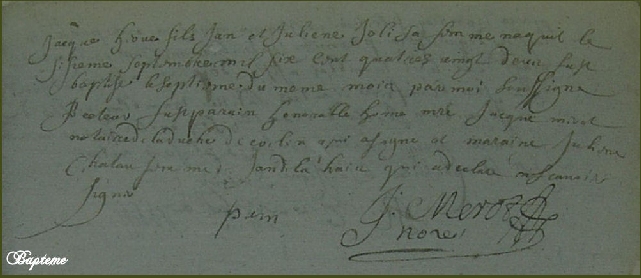 Jacque hioue fils Jan et Juliene Joli sa femme naquit le
sisieme septembre mil six cent quatres vingt deux fust
baptise le septieme du meme mois par moi soussigne
Recteur fust parain honorable home mre Jacque
notaire de la duche de qui a signe et maraine Juliene
Chalau Jan de la haie qui a declare ne scavoir
signer
J. Merot
nore
Bapteme